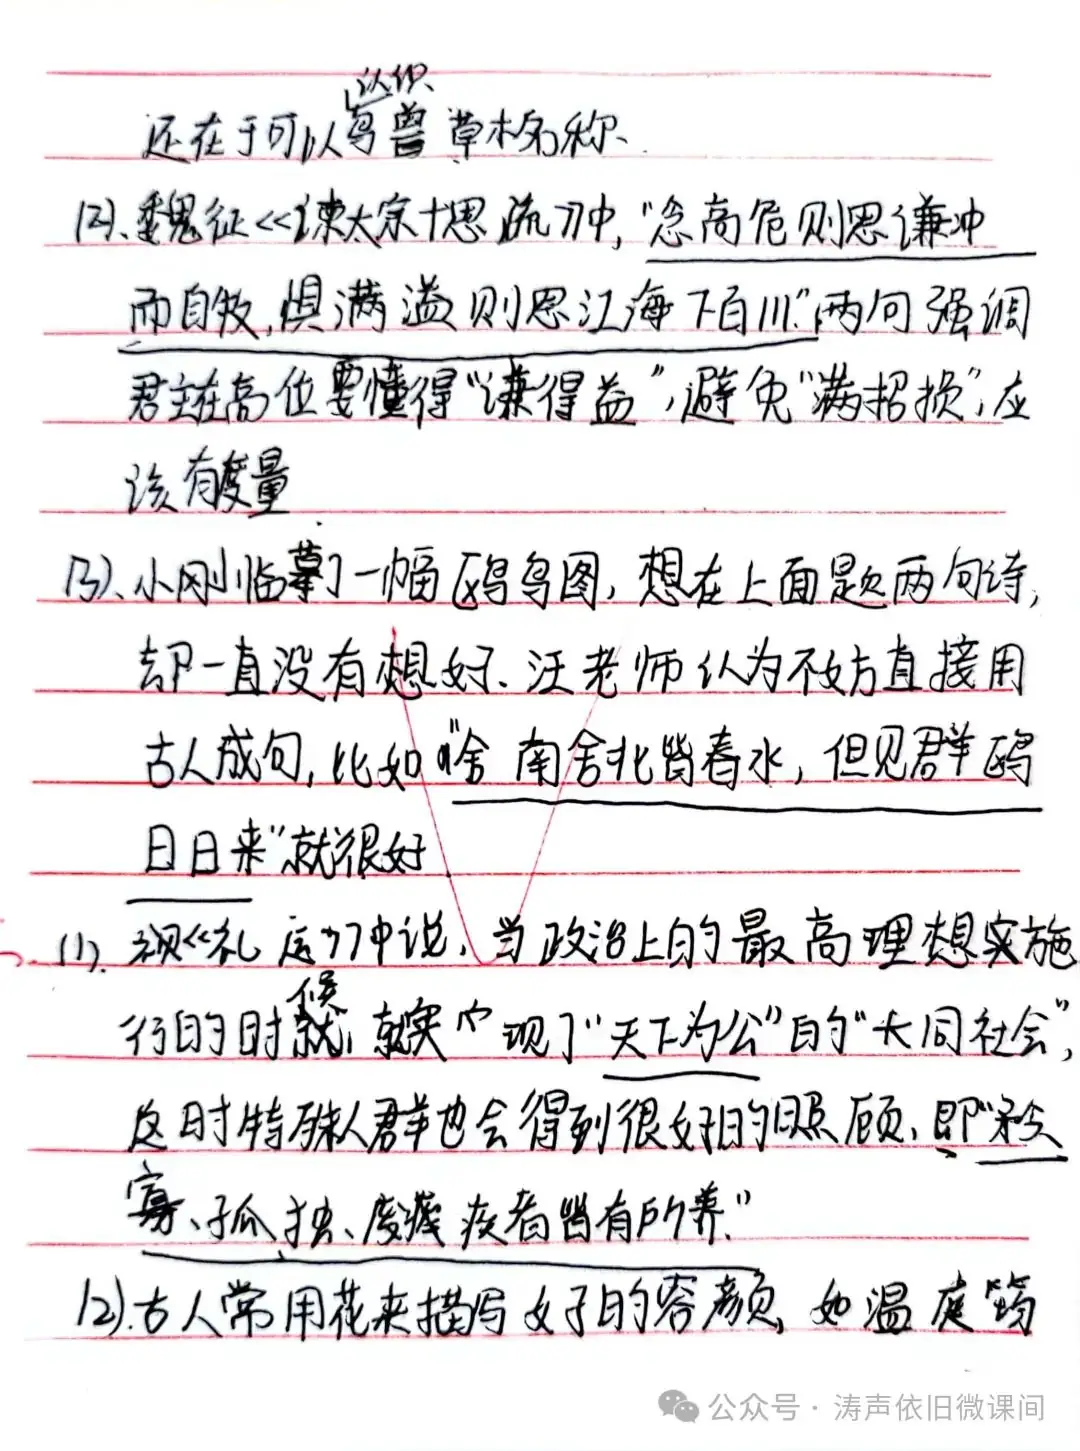 认识
还在于可以鸟兽草木名称、
(2)、魏征《谏太宗十思疏》中，“念高危则思谦冲
而自牧，惧满溢则思江海下百川”，两句强调
君主在高位要懂得“谦得益”，避免“满招损”，应
该有度量
(3)、小刚临摹了一幅鸥鸟图，想在上面题两句诗，
却一直没有想好、汪老师认为不妨直接用
古人成句，比如“舍南舍北皆春水，但见群鸥
日日来”就很好
(1)、《礼运》中说，当政治上的最高理想实施
候
行的时就，就实现了“天下为公”的“大同社会”，
这时特殊人群也会得到很好的照顾、即“矜
寡、孤独、废残疾者皆有所养”
(2)、古人常用花来描写女子的容颜，如温庭筠
公众号·涛声依旧微课间